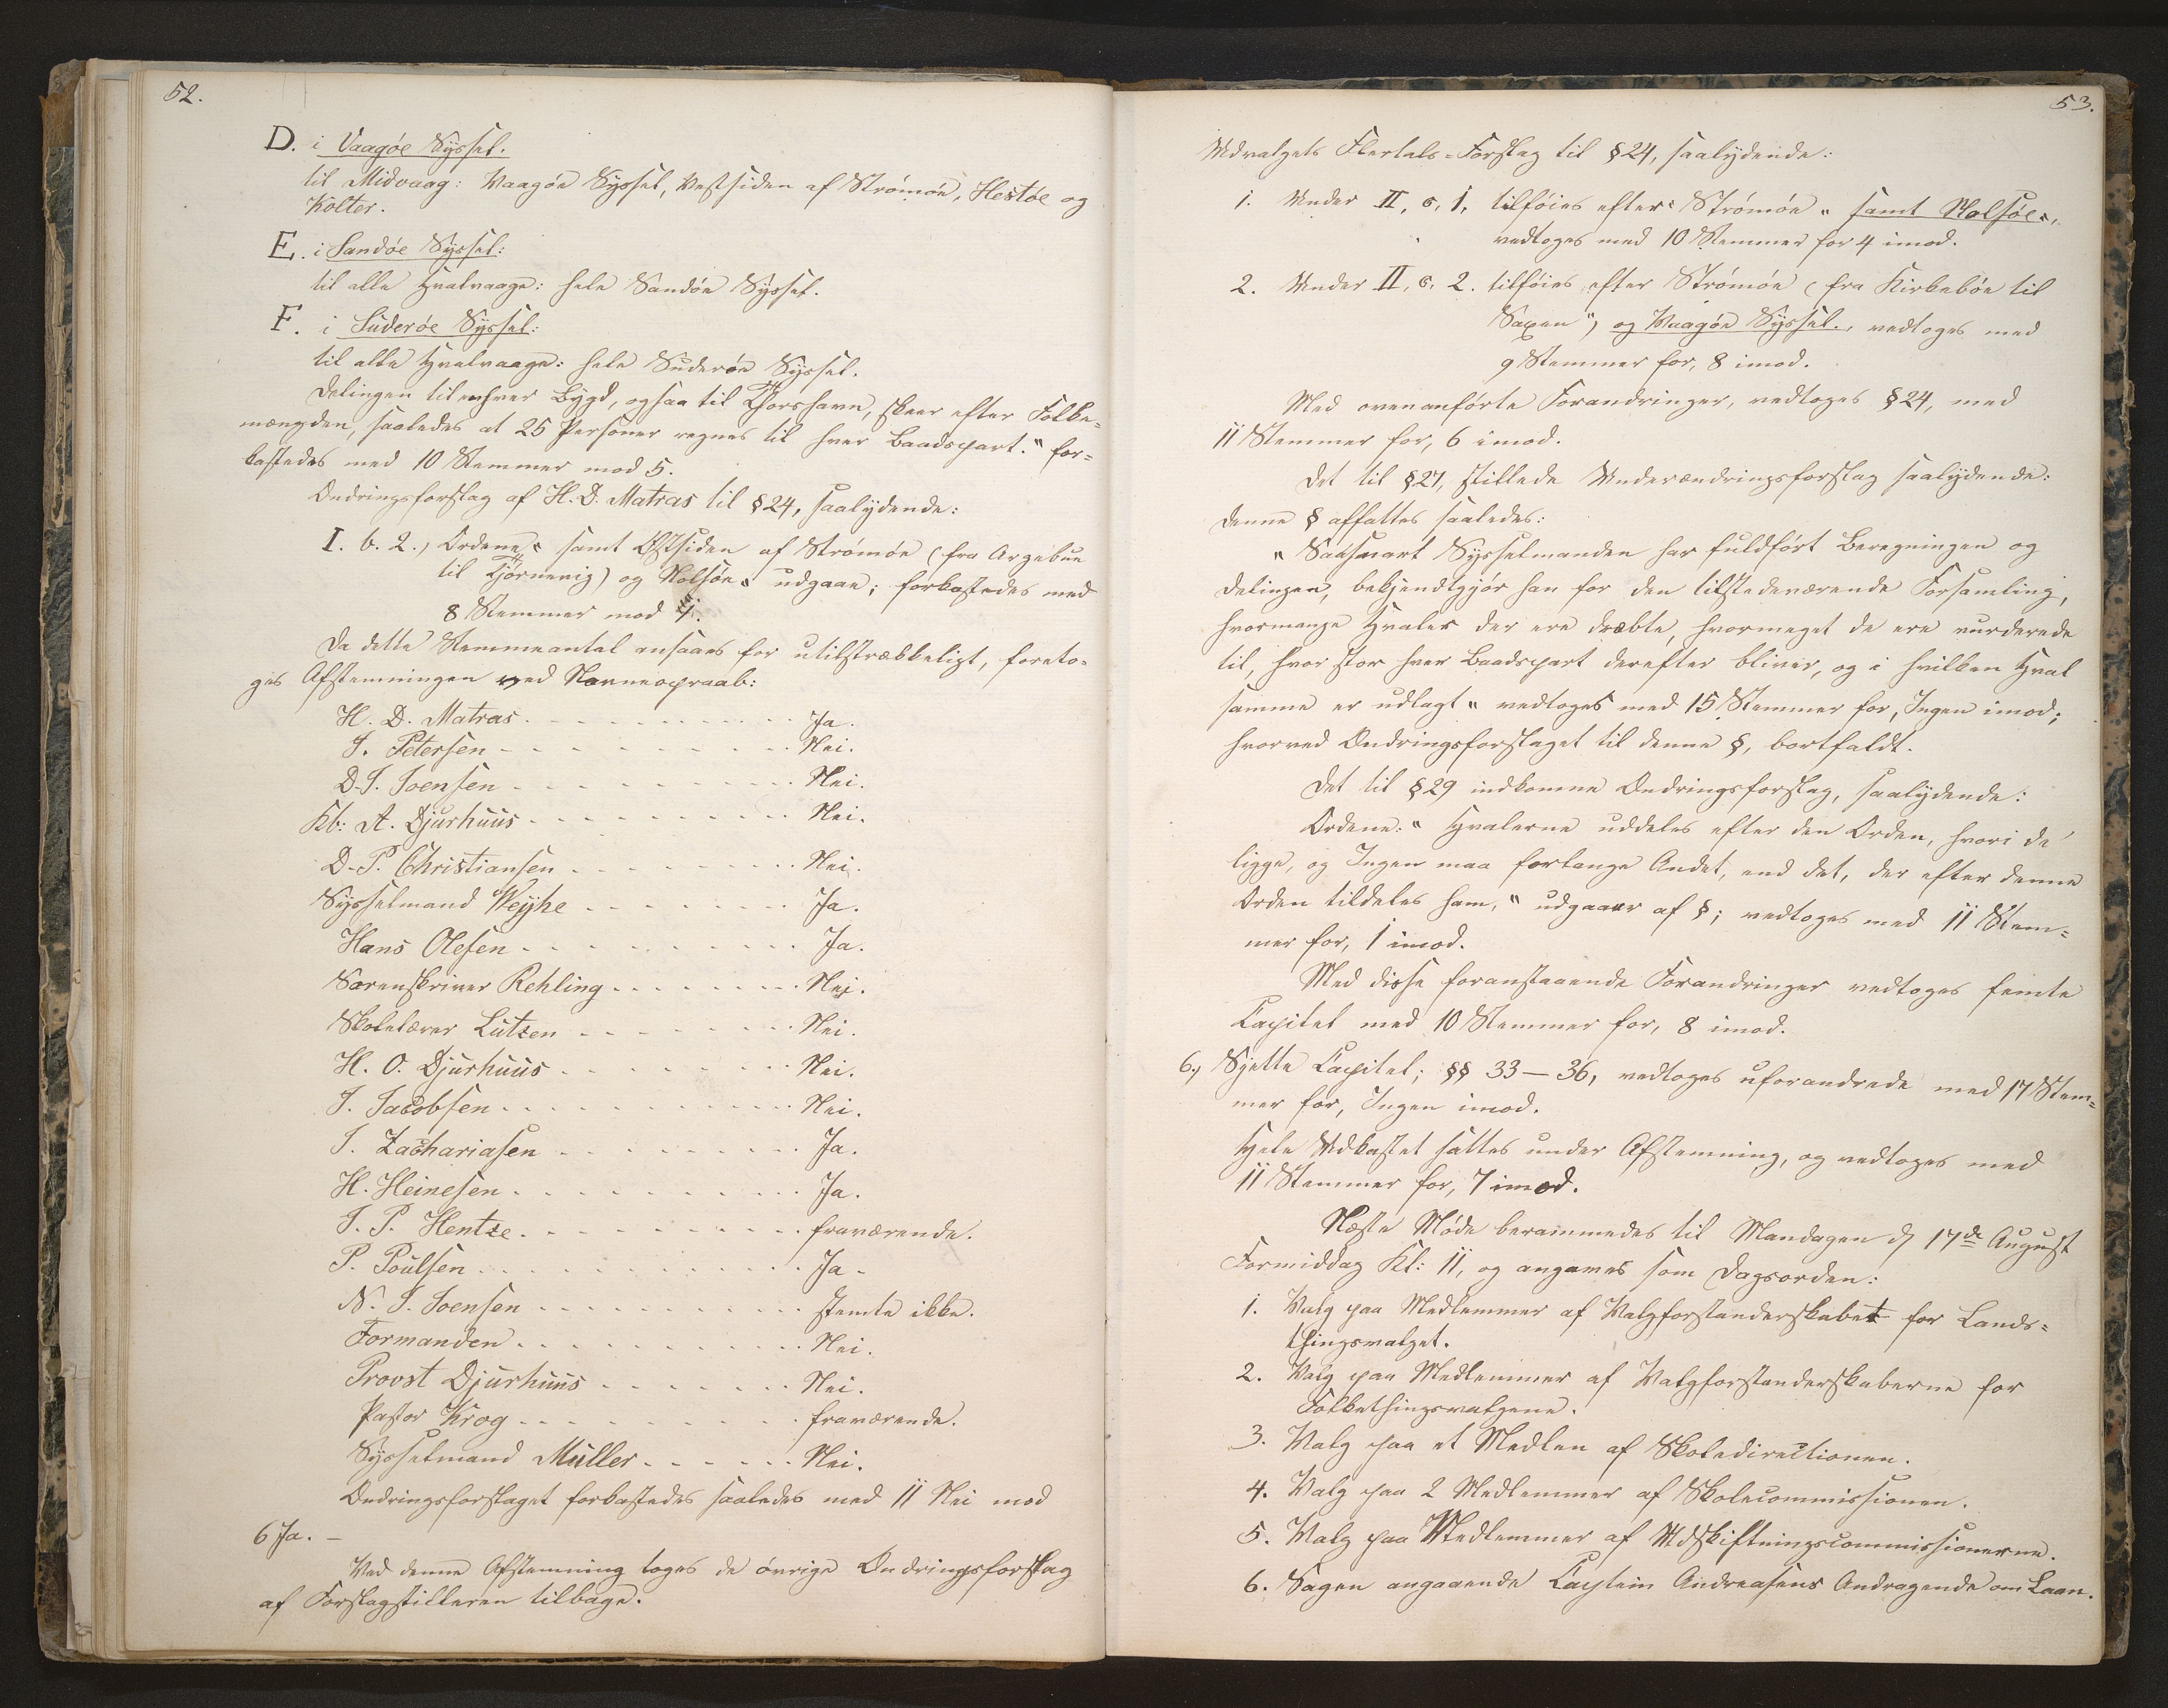 52.
D. i Vaagøe Syssel.
til Midvaag: Vaagøe Syssel, Vestsiden af Strømøe, Hestøe og
Kolter.
E. i Sandøe Syssel:
til alle Hvalvaage: hele Sandøe Syssel.
F. i Suderøe Syssel:
til alle Hvalvaage: hele Suderøe Syssel.
Delingen til enhver Bygd, ogsaa til Thorshavn, skeer efter Folke=
mængden, saaledes at 25 Personer regnes til hver Baadspart." for=
kastedes med 10 Stemmer mod 5.
Ændringsforslag af H. D. Matras til § 24, saalydende:
I. b. 2., Ordene " samt Østsiden af Strømøe (fra Argebue
til Tjørnevig) og Nolsøe " udgaae; forkastedes med
8 Stemmer mod 4.
Da dette Stemmeantal ansaaes for utilstrækkeligt, foreto=
ges Afstemningen ved Navneopraab:
H. D. Matras - - - Ja.
J. Petersen - - - Nei.
D. J. Joensen - - - Nei.
Kb: A. Djurhuus - - - Nei.
D. P. Christiansen - - - Nei.
Sysselmand Weyhe - - - Ja.
Hans Olesen - - - Ja.
Sorenskriver Rehling - - - Nei.
Skolelærer Lützen - - - Nei.
H. O. Djurhuus - - - Nei.
J. Jacobsen - - - Nei.
J. Zachariasen - - - Ja.
H. Heinesen - - - Ja.
J. P. Hentze - - - fraværende.
P. Poulsen - - - Ja.
N. J. Joensen - - - stemte ikke.
Formanden - - - Nei.
Provst Djurhuus - - - Nei.
Pastor Krog - - - fraværende.
Sysselmand Müller - - - Nei.
Ændringsforslaget forkastedes saaledes med 11 Nei mod
6 Ja. —
Ved denne Afstemning toges de øvrige Ændringsforslag
af Forslagstilleren tilbage.
53.
Udvalgets Flertals=Forslag til § 24, saalydende:
1. Under II, c, 1, tilføies efter: Strømøe " samt Nolsøe ",
vedtoges med 10 Stemmer for 4 imod.
2. Under II, c. 2. tilføies efter Strømøe (fra Kirkebøe til
Saxen") og Vaagøe Syssel., vedtoges med
9 Stemmer for, 8 imod.
Med ovenanførte Forandringer, vedtoges § 24, med
11 Stemmer for, 6 imod.
Det til § 27, stillede Underændringsforslag saalydende:
denne § affattes saaledes:
" Saasnart Sysselmanden har fuldført Beregningen og
Delingen, bekjendtgjør han for den tilstedeværende Forsamling,
hvormange Hvaler der ere dræbte, hvormeget de ere vurderede
til, hvor stor hver Baadspart derefter bliver, og i hvilken Hval
samme er udlagt " vedtoges med 15 Stemmer for, Ingen imod;
hvorved Ændringsforslaget til denne §, bortfaldt.
Det til § 29 indkomne Ændringsforslag, saalydende:
Ordene: " Hvalerne uddeles efter den Orden, hvori de
ligge, og Ingen maa forlange Andet, end det, der efter denne
Orden tildeles ham, " udgaaer af §; vedtoges med 11 Stem=
mer for, 1 imod.
Med disse foranstaaende Forandringer vedtoges femte
Capitel med 10 Stemmer for, 8 imod.
6., Sjette Capitel; §§ 33 — 36, vedtoges uforandrede med 17 Stem=
mer for, Ingen imod.
Hele Udkastet sattes under Afstemning, og vedtoges med
11 Stemmer for, 7 imod.
Næste Møde berammedes til Mandagen d 17de August
Formiddag Kl: 11, og angaves som Dagsorden:
1. Valg paa Medlemmer af Valgforstanderskabet for Lands=
thingsvalget.
2. Valg paa Medlemmer af Valgforstanderskaberne for
Folkethingsvalgene.
3. Valg paa et Medlem af Skoledirectionen.
4. Valg paa 2 Medlemmer af Skolecommissionen.
5. Valg paa Medlemmer af Udskiftningscommissionerne.
6. Sagen angaaende Captein Andreasens Andragende om Laan.